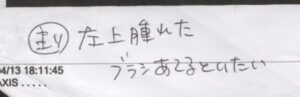 左上腫れた
ブラシあてるといたい
04/13 18:11:45
AXIS.....